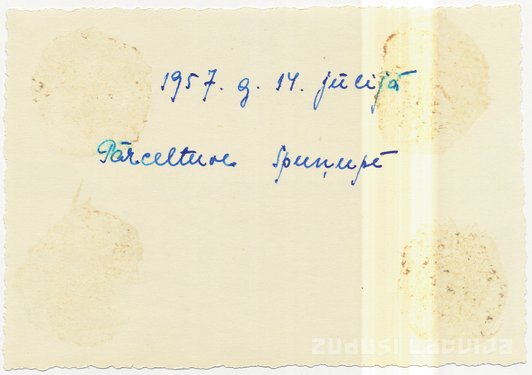 1957. g. 14. jūlijā
Pārceltuve Spuņupē
zudusi latvija